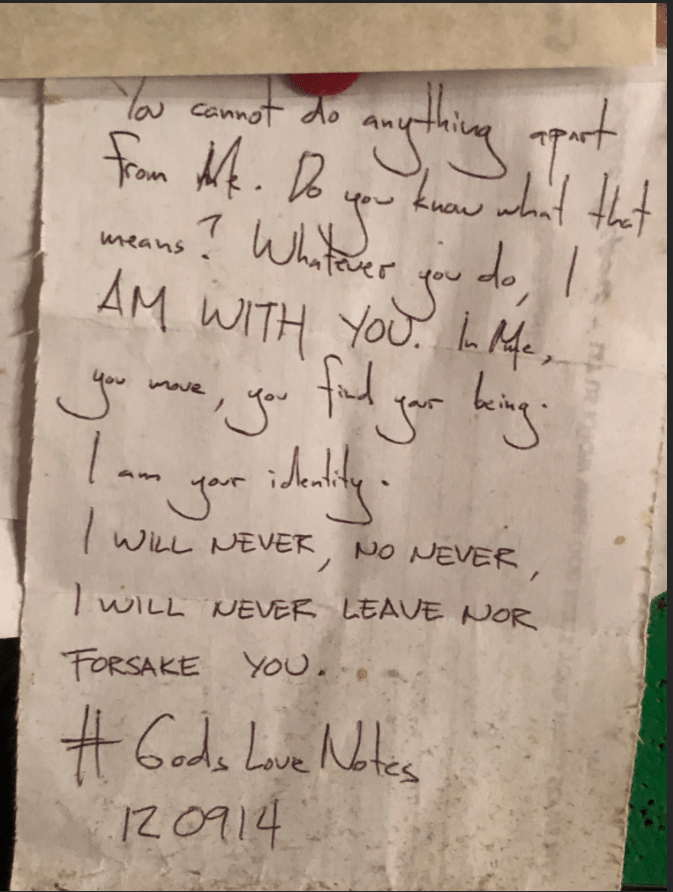 You cannot do anything apart
from Me. Do you know what that
means? Whatever you do, I
AM WITH YOU. In Me,
you move, you find your being.
I am your identity.
I WILL NEVER, NO NEVER,
I WILL NEVER LEAVE NOR
FORSAKE YOU.
# Gods Love Notes
120914